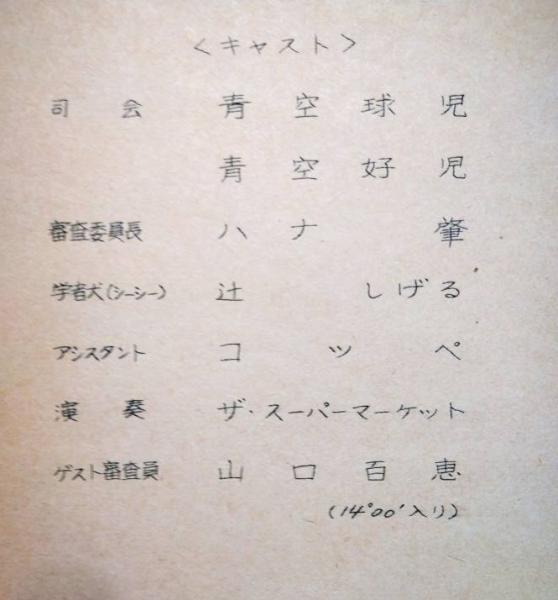 ＜キャスト＞
司会 青空球児
青空好児
審査委員長 ハナ肇
学者犬(シーシー) 辻しげる
アシスタント コッペ
演奏 ザ・スーパーマーケット
ゲスト審査員 山口百恵
(14°00'入り)